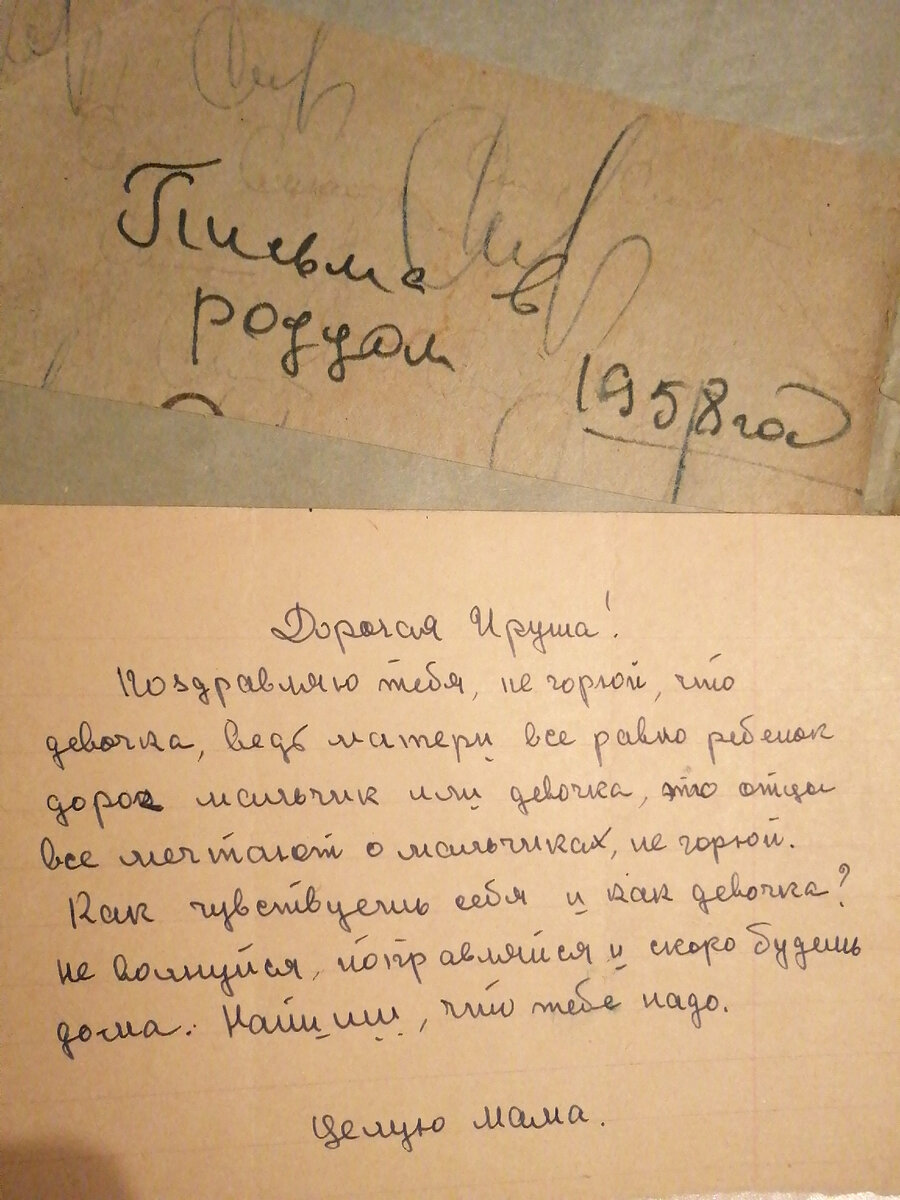 Письма в
роддом
1958 год
Дорогая Ируша!
Поздравляю тебя, не горюй, что
девочка, ведь матери все равно ребенок
дорог мальчик или девочка, это отцы
все мечтают о мальчиках, не горюй.
Как чувствуешь себя и как девочка?
не волнуйся, поправляйся и скоро будешь
дома. Напиши, что тебе надо.
Целую мама.